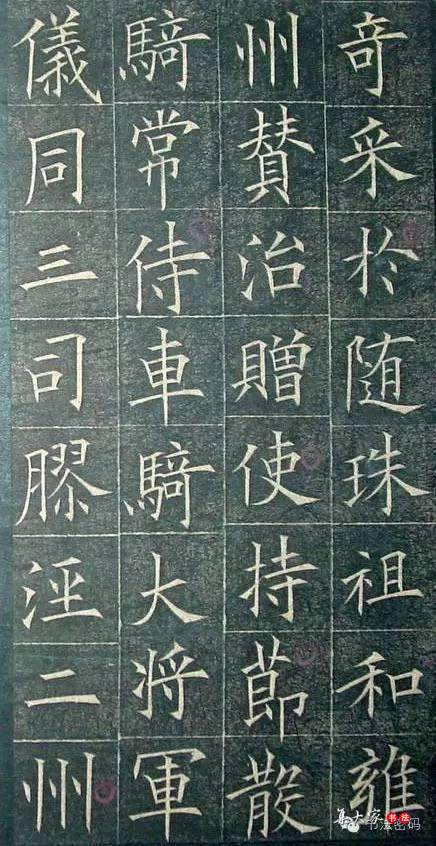 奇采於随珠祖和雍
州賛治贈使持節散
騎常侍車騎大将軍
儀同三司膠涇二州
集大家书法
书法密码